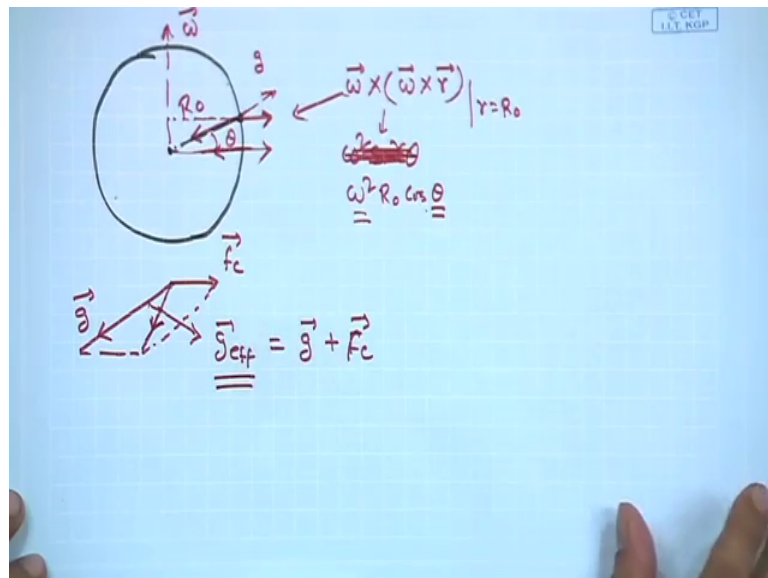 © CET
I.I.T. KGP
ω⃗
g
R₀
θ
ω⃗ × (ω⃗ × r⃗) | r = R₀
ω² R₀ cos θ
f⃗c
g⃗
g⃗eff = g⃗ + F⃗c